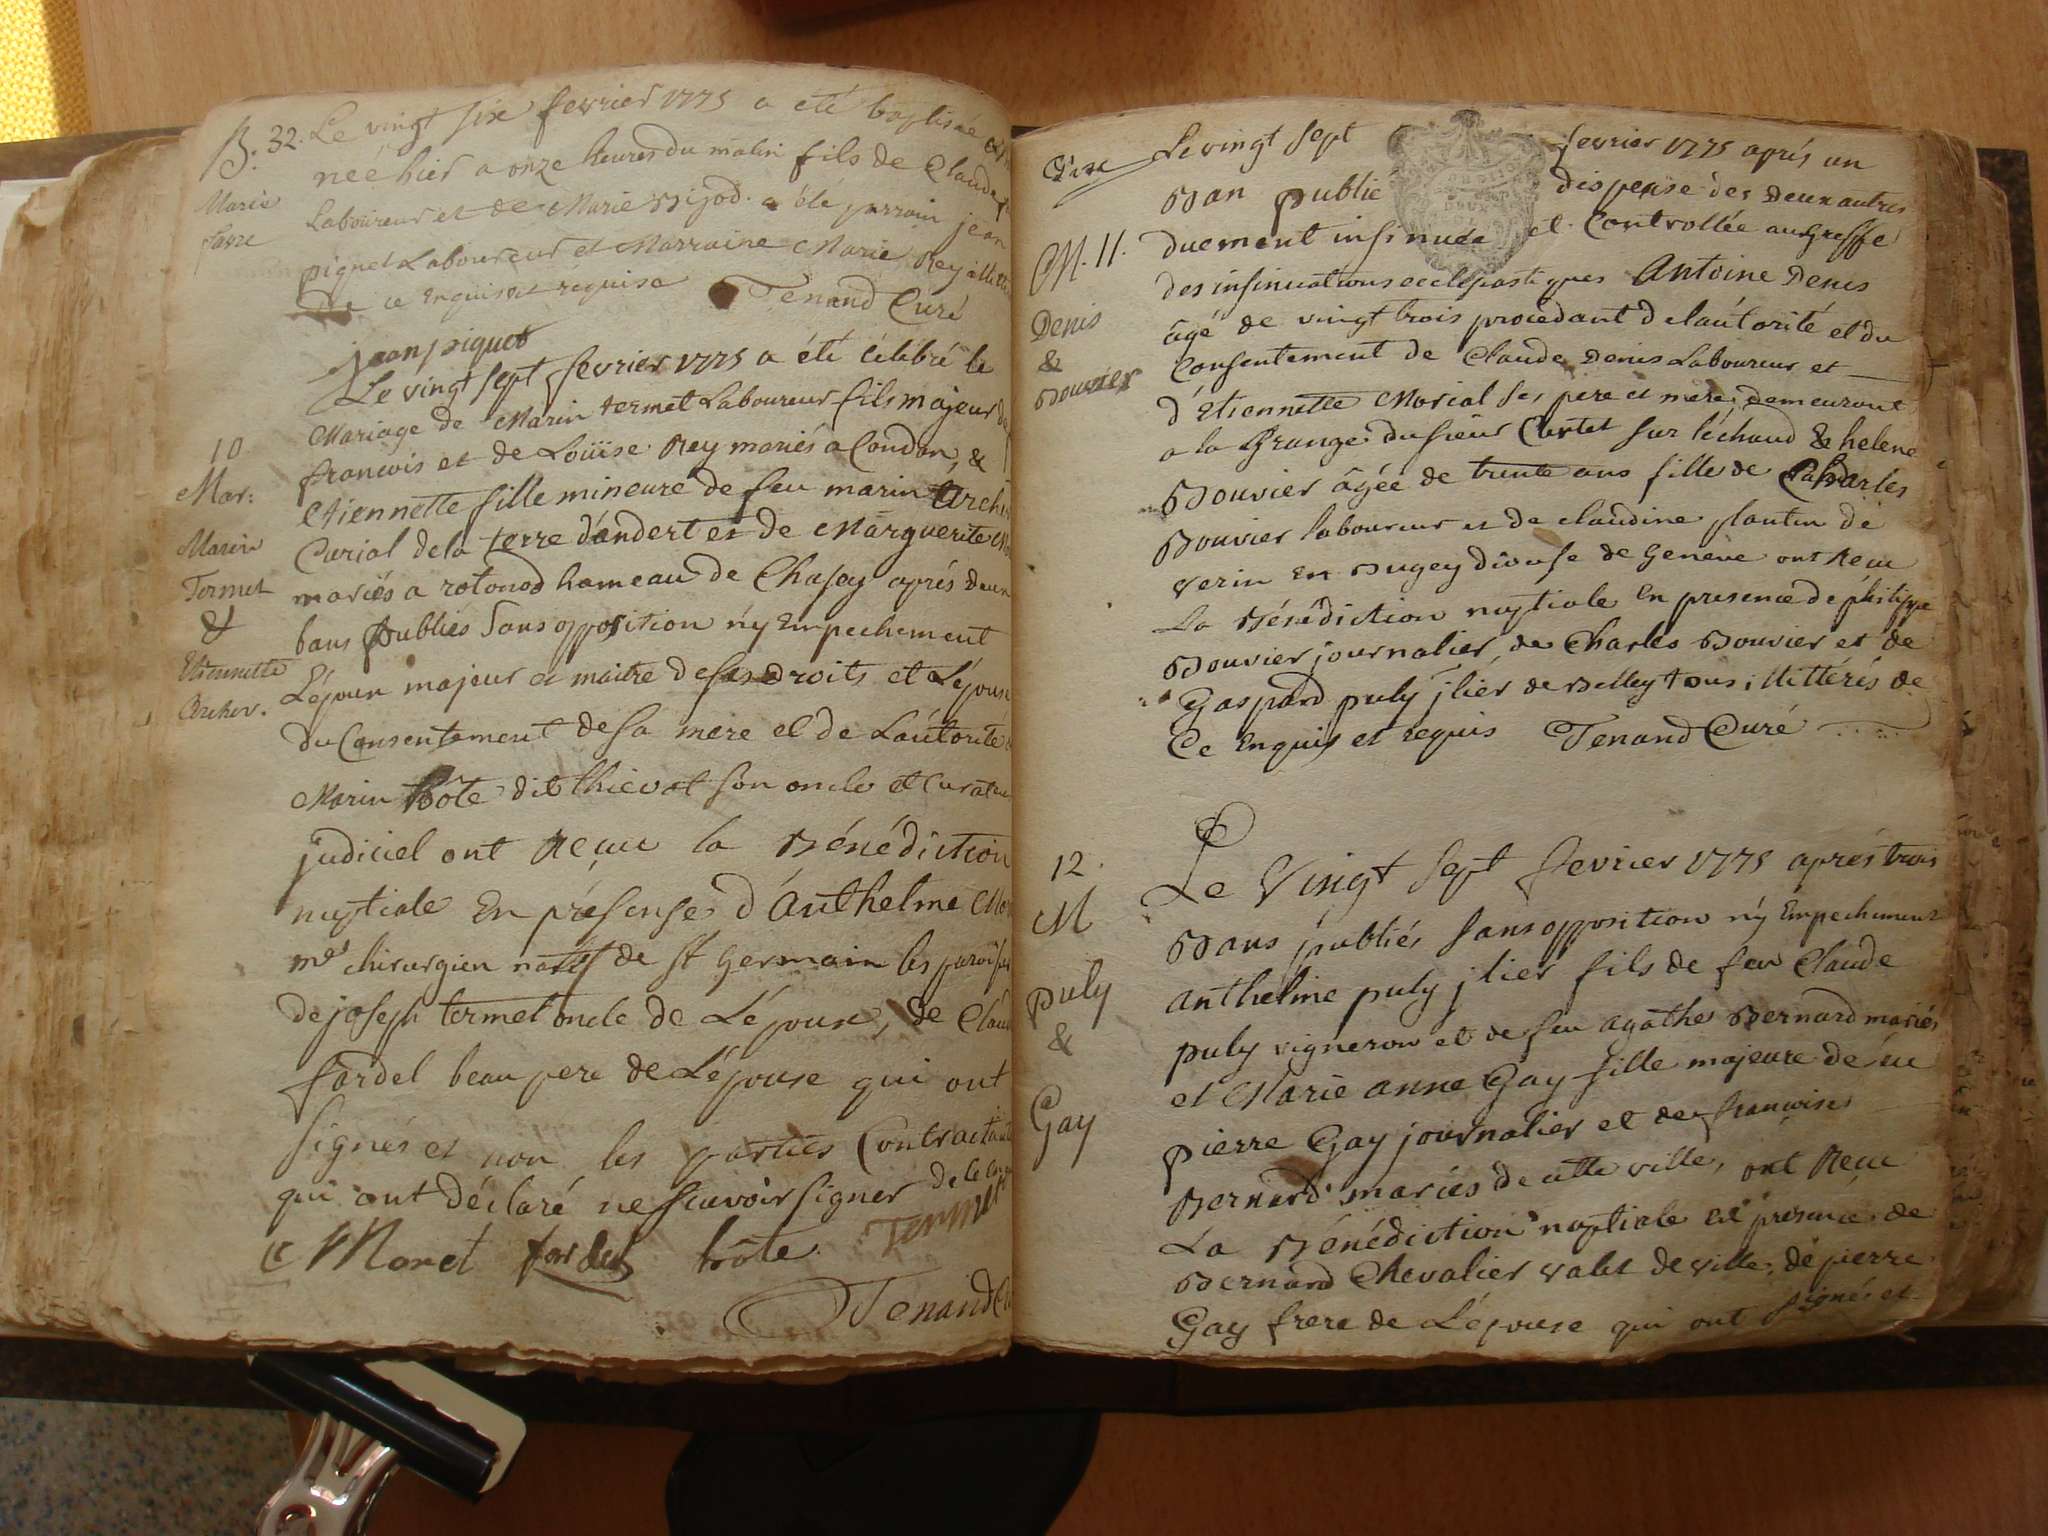 B. 32. Le vingt six fevrier 1775 a eté baptisée
née hier a onze heures du matin fils de Claude
Marie
Favre
Laboureur et de Marie Bijod. a été parrain jean
pignet Laboureur et Marraine Marie Rey
de ce Enquis et requise Tenand Curé
jean piguet
Le vingt sept fevrier 1775 a été célébré le
Mariage de Marin termet Laboureur fils majeur de
francois et de Loüise Rey mariés a Condon, &
Etiennette fille mineure de feu marin
Curial de la terre d'andert et de Marguerite
mariés a rotonod hameau de Chasey aprés deux
bans publiés Sans opposition n'y Empechement
L'époux majeur et maitre de ses droits et L'épouse
du Consentement de sa mere et de L'autorité
Marin trôte dit thievot son oncle et Curateur
judiciel ont Reçu la Bénédiction
nuptiale En présense d'Anthelme
me chirurgien natif de st Germain les paroisses
de joseph termet oncle de L'époux, de
fardel beau pere de L'épouse qui ont
signés et non les parties Contractantes
qui ont déclaré ne scavoir signer de ce
Moret fardel trôte Termet
Tenand
10
Mar:
Marin
Termet
&
Etiennette
Archer.
Le vingt sept fevrier 1775 aprés un
Ban publié dispense des Deux autres
duement insinuée et Controllée au Greffe
des insinuations ecclesiastiques Antoine Denis
âgé de vingt trois procedant de l'autorité et du
Consentement de Claude Denis Laboureur et
d'Etiennette Morial ses pere et mere, demeurant
a la Grange du sieur Cartet sur l'échaud & helene
Bouvier âgée de trente ans fille de Charles
Bouvier laboureur et de claudine plantin de
verin En Bugey diouse de Geneve ont Reçu
La Bénédiction nuptiale En presence de philippe
Bouvier journalier, de Charles Bouvier et de
Gaspard puly jlier de Belley tous illittérés de
Ce Enquis et requis Tenand Curé
M. 11.
Denis
&
Bouvier
Le Vingt sept fevrier 1775 aprés trois
Bans publiés Sans opposition n'y Empechement
anthelme puly jlier fils de feu Claude
puly vigneron et de feu agathe Bernard mariés
et Marie anne Gay fille majeure de
pierre Gay journalier et de francoise
Bernard mariés de cette ville, ont Reçu
La Bénédiction nuptiale En présence de
Bernard Chevalier valet de ville, de pierre
Gay frere de L'épouse qui ont signés et
12.
M
puly
&
Gay